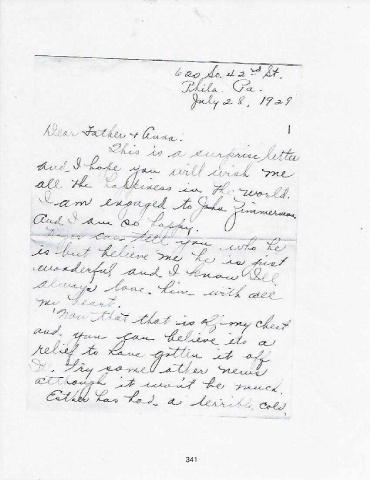 So. 42nd St.
Phila. Pa.
July 28, 1929
1
Dear Father & Anna:
This is a surprise letter
and I hope you will wish me
all the happiness in the world.
I am engaged to John Zimmerman
and I am so happy.
can tell you who he
is but believe me he is just
wonderful and I know I'll
always love him with all
my heart.
Now that that is off my chest
and you can believe its a
relief to have gotten it off
try some other news
although it won't be much.
Esther has had a terrible cold.
341